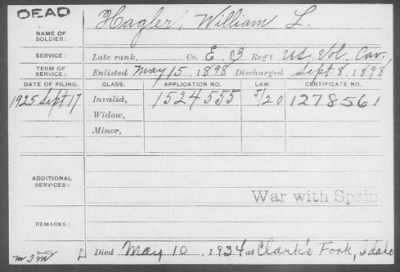 DEAD
Hagler, William L.
NAME OF SOLDIER:
SERVICE: Late rank, Co. E, 3 Reg't US Vol. Cav.
TERM OF SERVICE: Enlisted May 15, 1898 Discharged Sept. 8, 1898
DATE OF FILING. CLASS. APPLICATION NO. LAW. CERTIFICATE NO.
1925 Sept 17 Invalid, 1524555 5/20 1278561
Widow,
Minor,
ADDITIONAL SERVICES:
War with Spain
REMARKS:
Died May 10, 1934 at Clark's Fork, Idaho